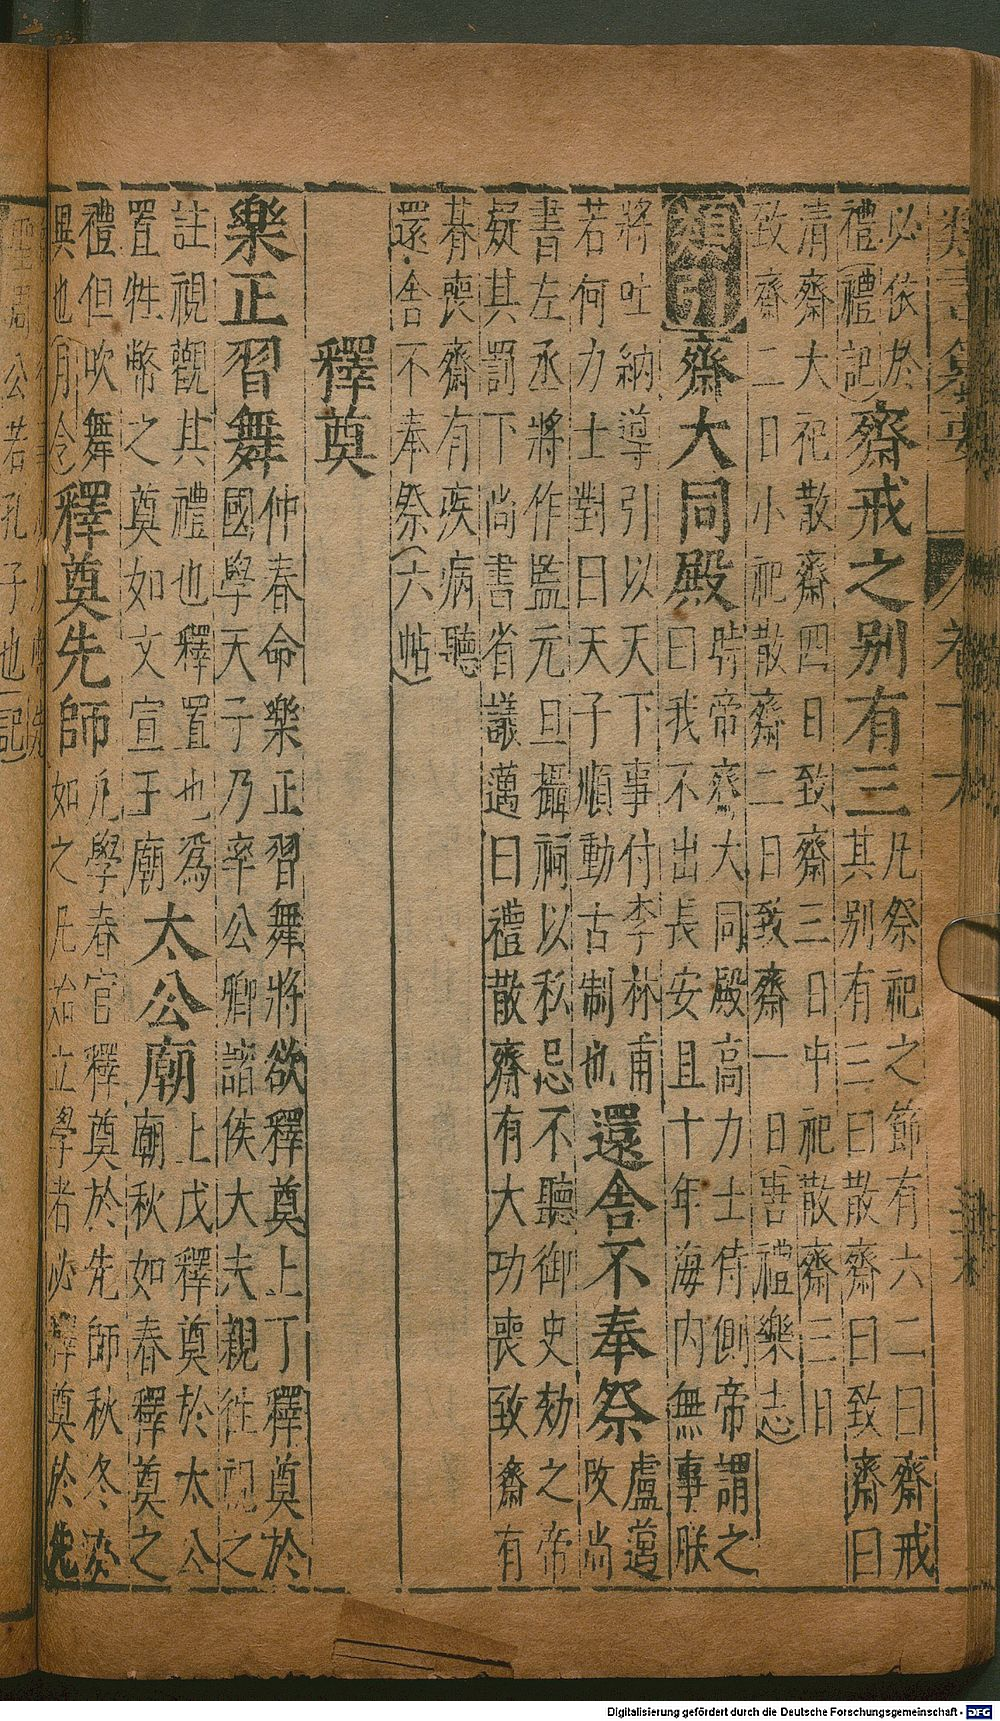 必依於
禮(禮記)
齋戒之别有三
凡祭祀之節有六二曰齋戒
其别有三曰散齋曰致齋曰
清齋大祀散齋四日致齋三日中祀散齋三日
致齋二日小祀散齋二日致齋一日(唐禮樂志)
齋大同殿
時帝齋大同殿高力士侍側帝謂之
曰我不出長安且十年海内無事朕
將吐納導引以天下事付李林甫
若何力士對曰天子順動古制也
還舍不奉祭
盧邁
改尚
書左丞將作監元亘攝祠以私忌不聽御史劾之帝
疑其罰下尚書省議邁曰禮散齋有大功喪致齋有
朞喪齋有疾病聽
還舍不奉祭(六帖)
釋奠
樂正習舞
仲春命樂正習舞將欲釋奠上丁釋奠於
國學天子乃率公卿諸侯大夫親往視之
註視觀其禮也釋置也爲
置牲幣之奠如文宣王廟
太公廟
上戊釋奠於太公
廟秋如春釋奠之
禮但吹舞
異也(月令)
釋奠先師
凡學春官釋奠於先師秋冬亦
如之凡始立學者必釋奠於先
聖周公若孔子也(記)
Digitalisierung gefördert durch die Deutsche Forschungsgemeinschaft - DFG